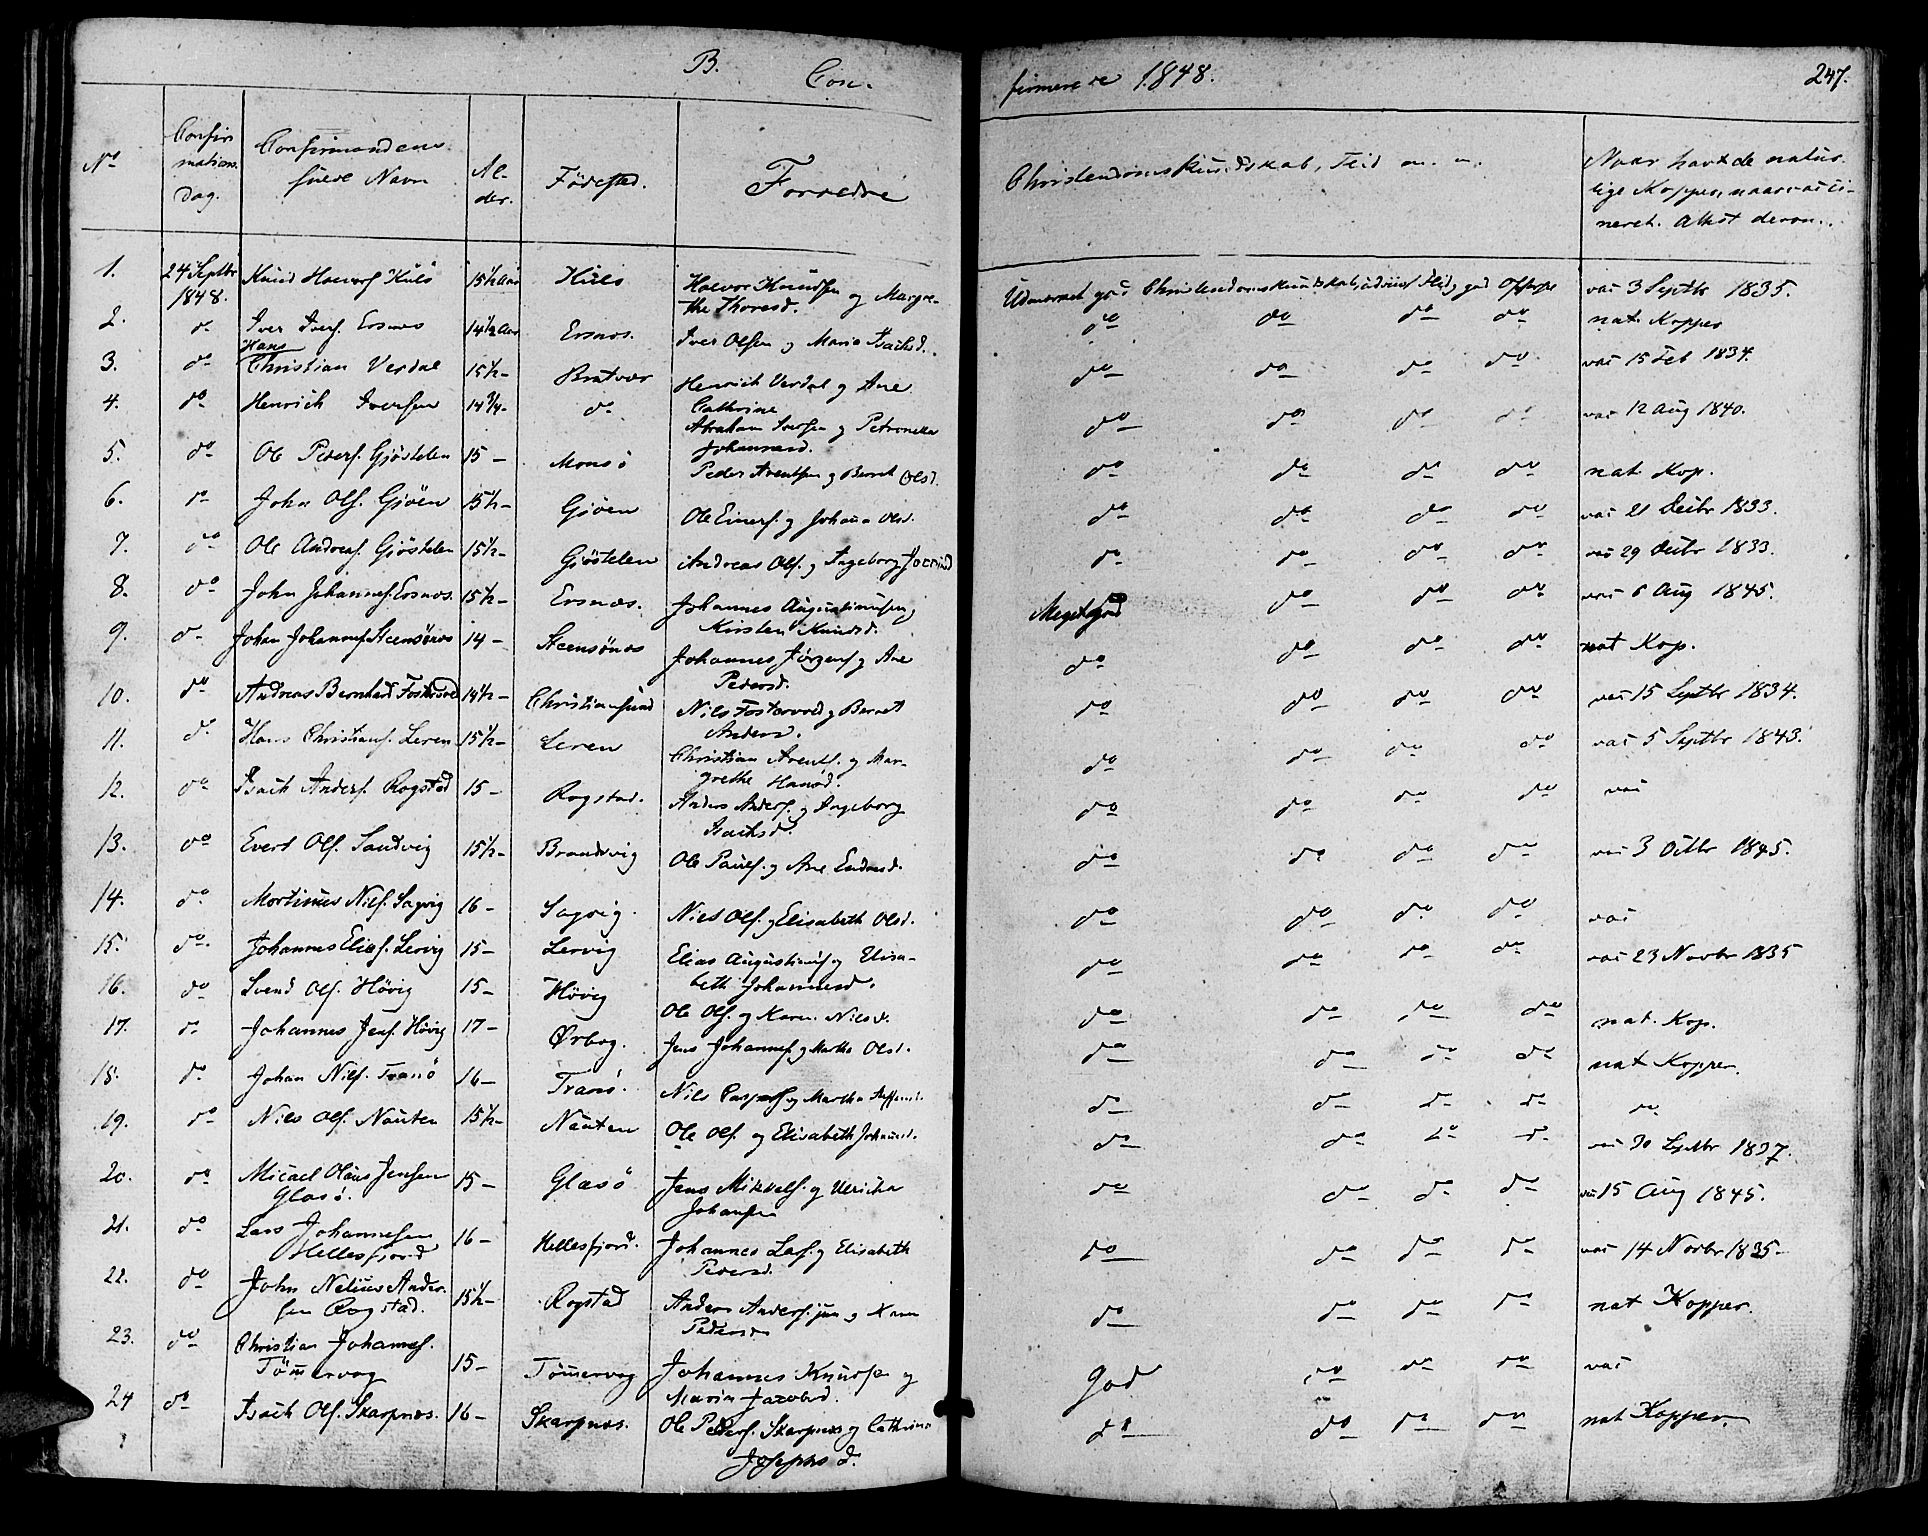 B.
Con-
firmerede 1848.
247.
No
Confir
mations
Dag.
Confirmandens
fulde Navn
Al-
der.
Fødested.
Forældre
Christendomskundskab, Flid m. m.
Naar havt de natur-
lige Kopper, naar vacci-
neret. Attest derom.
1. 24 Septbr 1848. Knud Halvors. Huls 15½ Aar Huls Halvor Knudsen og Margre-
the Thoresd. Udmærket god Christendomskundskab, udvist Flid, god Opførsel vac 3 Septbr 1835.
2. do Iver Ivers. Ersnæs 14½ Aar Ersnæs. Iver Olsen og Maria Isachsd. do do do do nat. Kopper
3. do Hans
Christian Verdal 15½ - Bratvær Henrich Verdal og Ane
Cathrine do do do do vac 15 Feb 1834.
4. do Henrich Iversen 14¾ - do Abraham Iversen og Petronella
Johannesd. do do do do vac 12 Aug 1840.
5. do Ole Peders. Gjøstelen 15 - Monsø Peder Arentsen og Beret Olsd. do do do do nat. Kop.
6. do John Ols. Gjøen 15½ - Gjøen Ole Einers. og Johana Olsd. do do do do vac 21 Decbr 1833.
7. do Ole Andreas. Gjøstelen 15½ - Gjøstelen Andreas Ols. og Ingeborg do do do do vac 29 Decbr 1833.
8. do John Johannes. Ersnæs. 15½ - Ersnæs. Johannes Augustinusen og
Kirsten Knudsd. Meget god do do do vac 6 Aug 1845.
9. do Johan Johannes. Steensønæs 14 - Steensønæs Johannes Jørgens. og Ane
Pedersd. do do do do nat Kop.
10. do Andreas Bernhard Fostervold 14½ - Christiansund Nils Fostervold og Berret
Andersd. do do do do vac 15 Septbr 1834.
11. do Hans Christians. Leren 15½ - Leren Christian Arents. og Mar-
grethe Hansd. do do do do vac 5 Septbr 1843.
12. do Isach Anders. Rogstad 15 - Rogstad. Anders Anders. og Ingeborg
Isachsd. do do do do vac
13. do Evert Ols. Sandvig 15½ - Brandvig Ole Pauls. og Ane Endresd. do do do do vac 3 Octbr 1845.
14. do Mortinus Nils. Sagvig 16 - Sagvig. Niels Ols. og Elisabeth Olsd. do do do do vac
15. do Johannes Elias. Lervig 15 - Lervig Elias Augustinus. og Elisa-
beth Johannesd. do do do do vac 23 Novbr 1835
16. do Svend Ols. Høvig 15 - Høvig Ole Ols. og Karen Nilsd. do do do do nat. Kop.
17. do Johannes Jens. Høvig 17 - Ørbog. Jens Johannes. og Martha Olsd. do do do do nat Kopper.
18. do Johan Nils. Tranø 16 - Tranø. Nils Caspers. og Martha Steffensd. do do do do do
19. do Nils Ols. Nauten 15½ - Nauten Ole Ols. og Elisabeth Johannesd. do do do do vac 30 Septbr 1837.
20. do Micael Olaus Jensen
Glasø. 15 - Glasø Jens Mikkels. og Ulricka
Johansen do do do do vac 15 Aug 1845.
21. do Lars Johannesen
Hellesfjord 16 - Hellesfjord. Johannes Lars. og Elisabeth
Pedersd. do do do do vac 14 Novbr 1835-
22. do John Nelius Ander-
sen Rogstad. 15½ - Rogstad Anders Anders. jun og Karen
Pedersd. do do do do nat Kopper.
23. do Christian Johannes.
Tömmervog 15 - Tömmervog Johannes Knudsen og
Maria Jacobsd. God do do do vac
24 do Isach Ols. Skarpnæs. 16 - Skarpnæs. Ole Peders. Skarpnæs og Cathrina
Josephs d. do do do do nat Kopper.